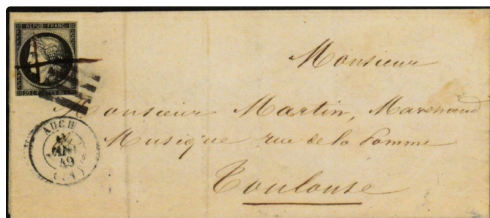 REPUB. FRANC.
Monsieur
Monsieur Martin, Marchand
Musique rue de la Pomme
Toulouse
AUCH
49